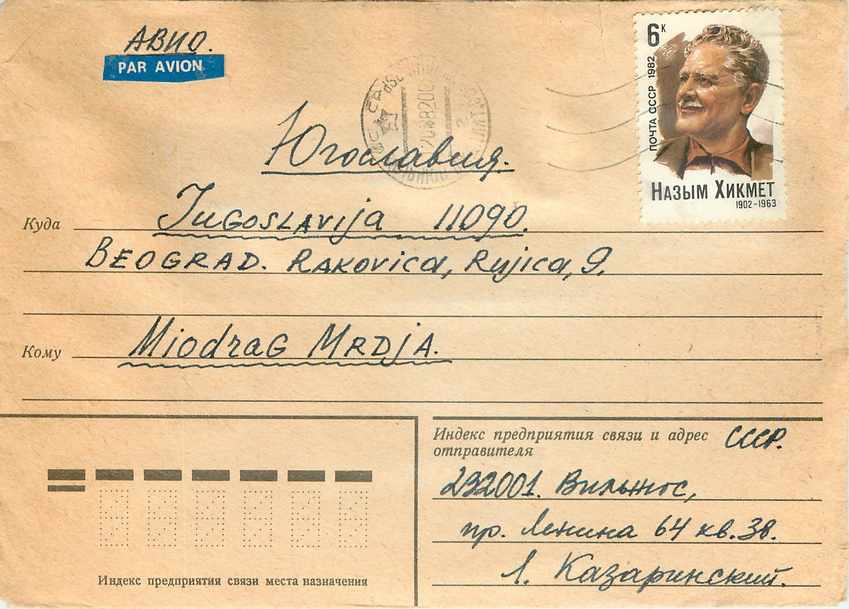 АВИО.
PAR AVION
6 К
ПОЧТА СССР 1982
НАЗЫМ ХИКМЕТ
1902-1963
Югославия.
Куда Jugoslavija 11090.
Beograd. Rakovica, Rujica, 9.
Кому Miodrag Mrdja.
Индекс предприятия связи и адрес
отправителя
СССР.
232001. Вильнюс,
пр. Ленина 64 кв. 38.
Л. Казаринский.
Индекс предприятия связи места назначения